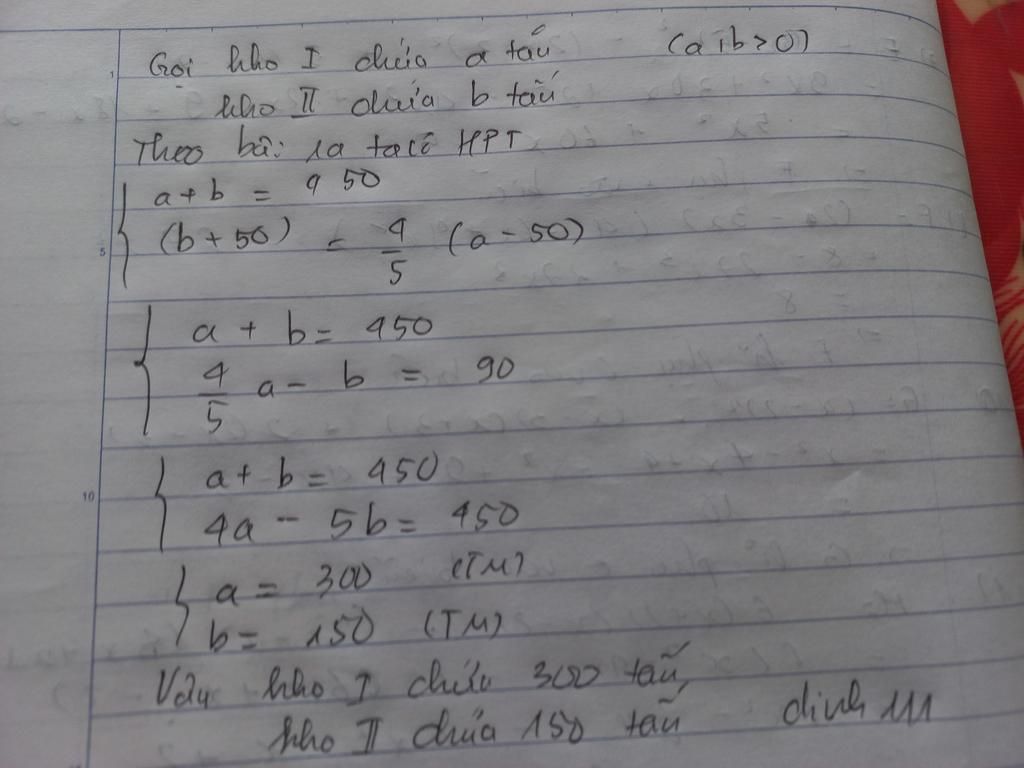 Gọi kho I chứa a tấn (a;b>0)
kho II chứa b tấn
Theo bài ra ta có HPT
{ a + b = 450
(b + 50) = 4/5 (a - 50)
{ a + b = 450
4/5 a - b = 90
{ a + b = 450
4a - 5b = 450
{ a = 300 (TM)
b = 150 (TM)
Vậy kho I chứa 300 tấn
kho II chứa 150 tấn